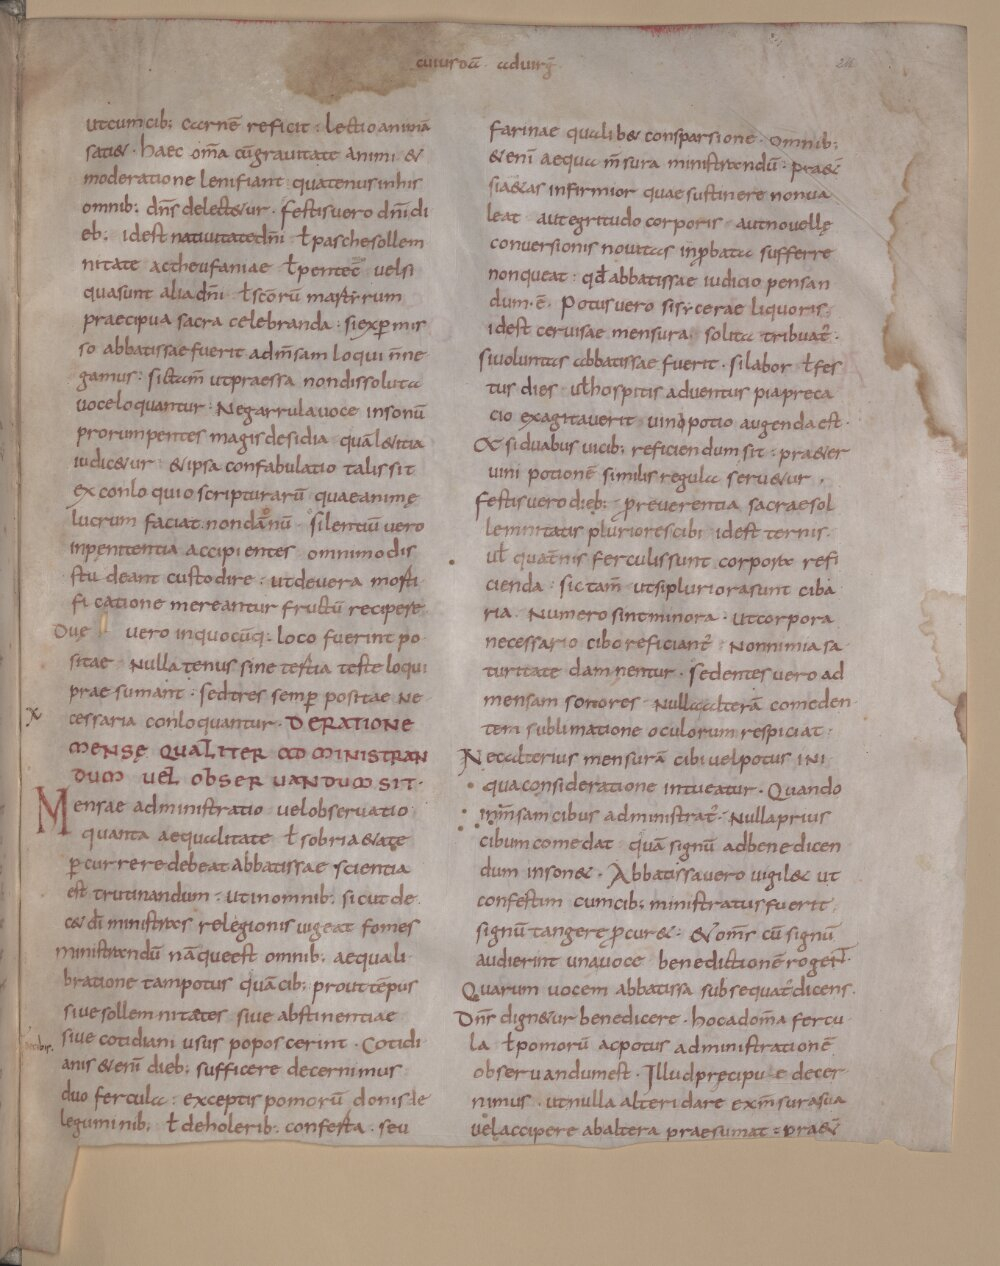 cuiusdā · ad uirḡ
ut cum cib; carnē reficit · lectio animā
satiet · haec om̄a cū gravitate animi &
moderatione lenifiant quatenus in his
omnib; dn̄s delectetur · festis vero dn̄i di
eb; id est nativitate dn̄i ł pasche sollem
nitate ac theufaniae ł pentec̄ vel si
qua sunt alia dn̄i ł sc̄orū martyrum
praecipua sacra celebranda · si ex p̱mis
so abbatissae fuerit ad m̄sam loqui n̄ ne
gamus : sic tam̄ ut praessa non dissoluta
voce loquantur · Ne garrula voce in sonū
prorumpentes magis desidia quā l&itia
iudic&ur · & ipsa confabulatio talis sit
ex conloquio scripturarū quae animę
lucrum faciat non dānū · silentiū vero
in penitentia accipientes omnimodis
studeant custodire · ut de vera morti
ficatione mereantur fructū recipere
Due vero in quocūq; loco fuerint po
sitae · Nullatenus sine tertia teste loqui
praesumant · sed tres semp̱ positae ne
cessaria conloquantur · DE RATIONE
MENSĘ QUALITER ADMINISTRAN
DUM VEL OBSERVANDUM SIT ·
Mensae administratio vel observatio
quanta aequalitate ł sobri&ate
p̱currere debeat abbatissae scientia
est trutinandum · ut in omnib; sicut de
c& dī ministras relegionis vigeat fomes
ministrandū nāque est omnib; aequali
bratione tam potus quā cib; prout tēpus
sive sollemnitates sive abstinentiae
sive cotidiani usus poposcerint · Cotidi
anis &enī dieb; sufficere decernimus
duo fercula : exceptis pomorū donis de
leguminib; ł de holerib; conferta · seu
farinae qualib& consparsione · omnib;
&enī aequa m̄sura ministrandū · pra&
si a&as infirmior quae sustinere non va
leat aut egritudo corporis aut novellę
conversionis novitas inp̱bata sufferre
non queat : qd̄ abbatissae iudicio pensan
dum ē · Potus vero sis ycerae liquoris;
id est cervisae mensura solita tribuat̄ ·
si voluntas abbatissae fuerit · si labor ł fes
tus dies uł hospitis adventus pia preca
cio exagitaverit vini potio augenda est ·
Et si duabus vicib; reficiendum sit · pra&er
vini potionē similis regula serv&ur ·
festis vero dieb; p̱ reverentia sacrae sol
lemnitatis pluriores cibi id est ternis
uł quat̄nis ferculis sunt corpora refi
cienda : sic tam̄ ut si pluriora sunt ciba
ria · Numero sint minora · ut corpora
necessario cibo reficiant̄ · Non nimia sa
turitate damnentur · sedentes vero ad
mensam sorores · Nulla alterā comeden
tem sublimatione oculorum respiciat ·
Nec alterius mensurā cibi vel potus ini
qua consideratione intueatur · Quando
in m̄sam cibus administrat̄ · Nulla prius
cibum comedat quā signū ad benedicen
dum inson& · Abbatissa vero vigil& ut
confestim cum cib; ministratus fuerit
signū tangere p̱cur& · & om̄s cū signū
audierint una voce benedictionē rogent
Quarum vocem abbatissa subsequat̄ dicens ·
Dn̄s dign&ur benedicere · hoc ad om̄a fercu
la ł pomorū ac potus administrationē
observandum est · Illud precipue decer
nimus · ut nulla alteri dare ex m̄sura sua
vel accipere ab altera praesumat : pra&